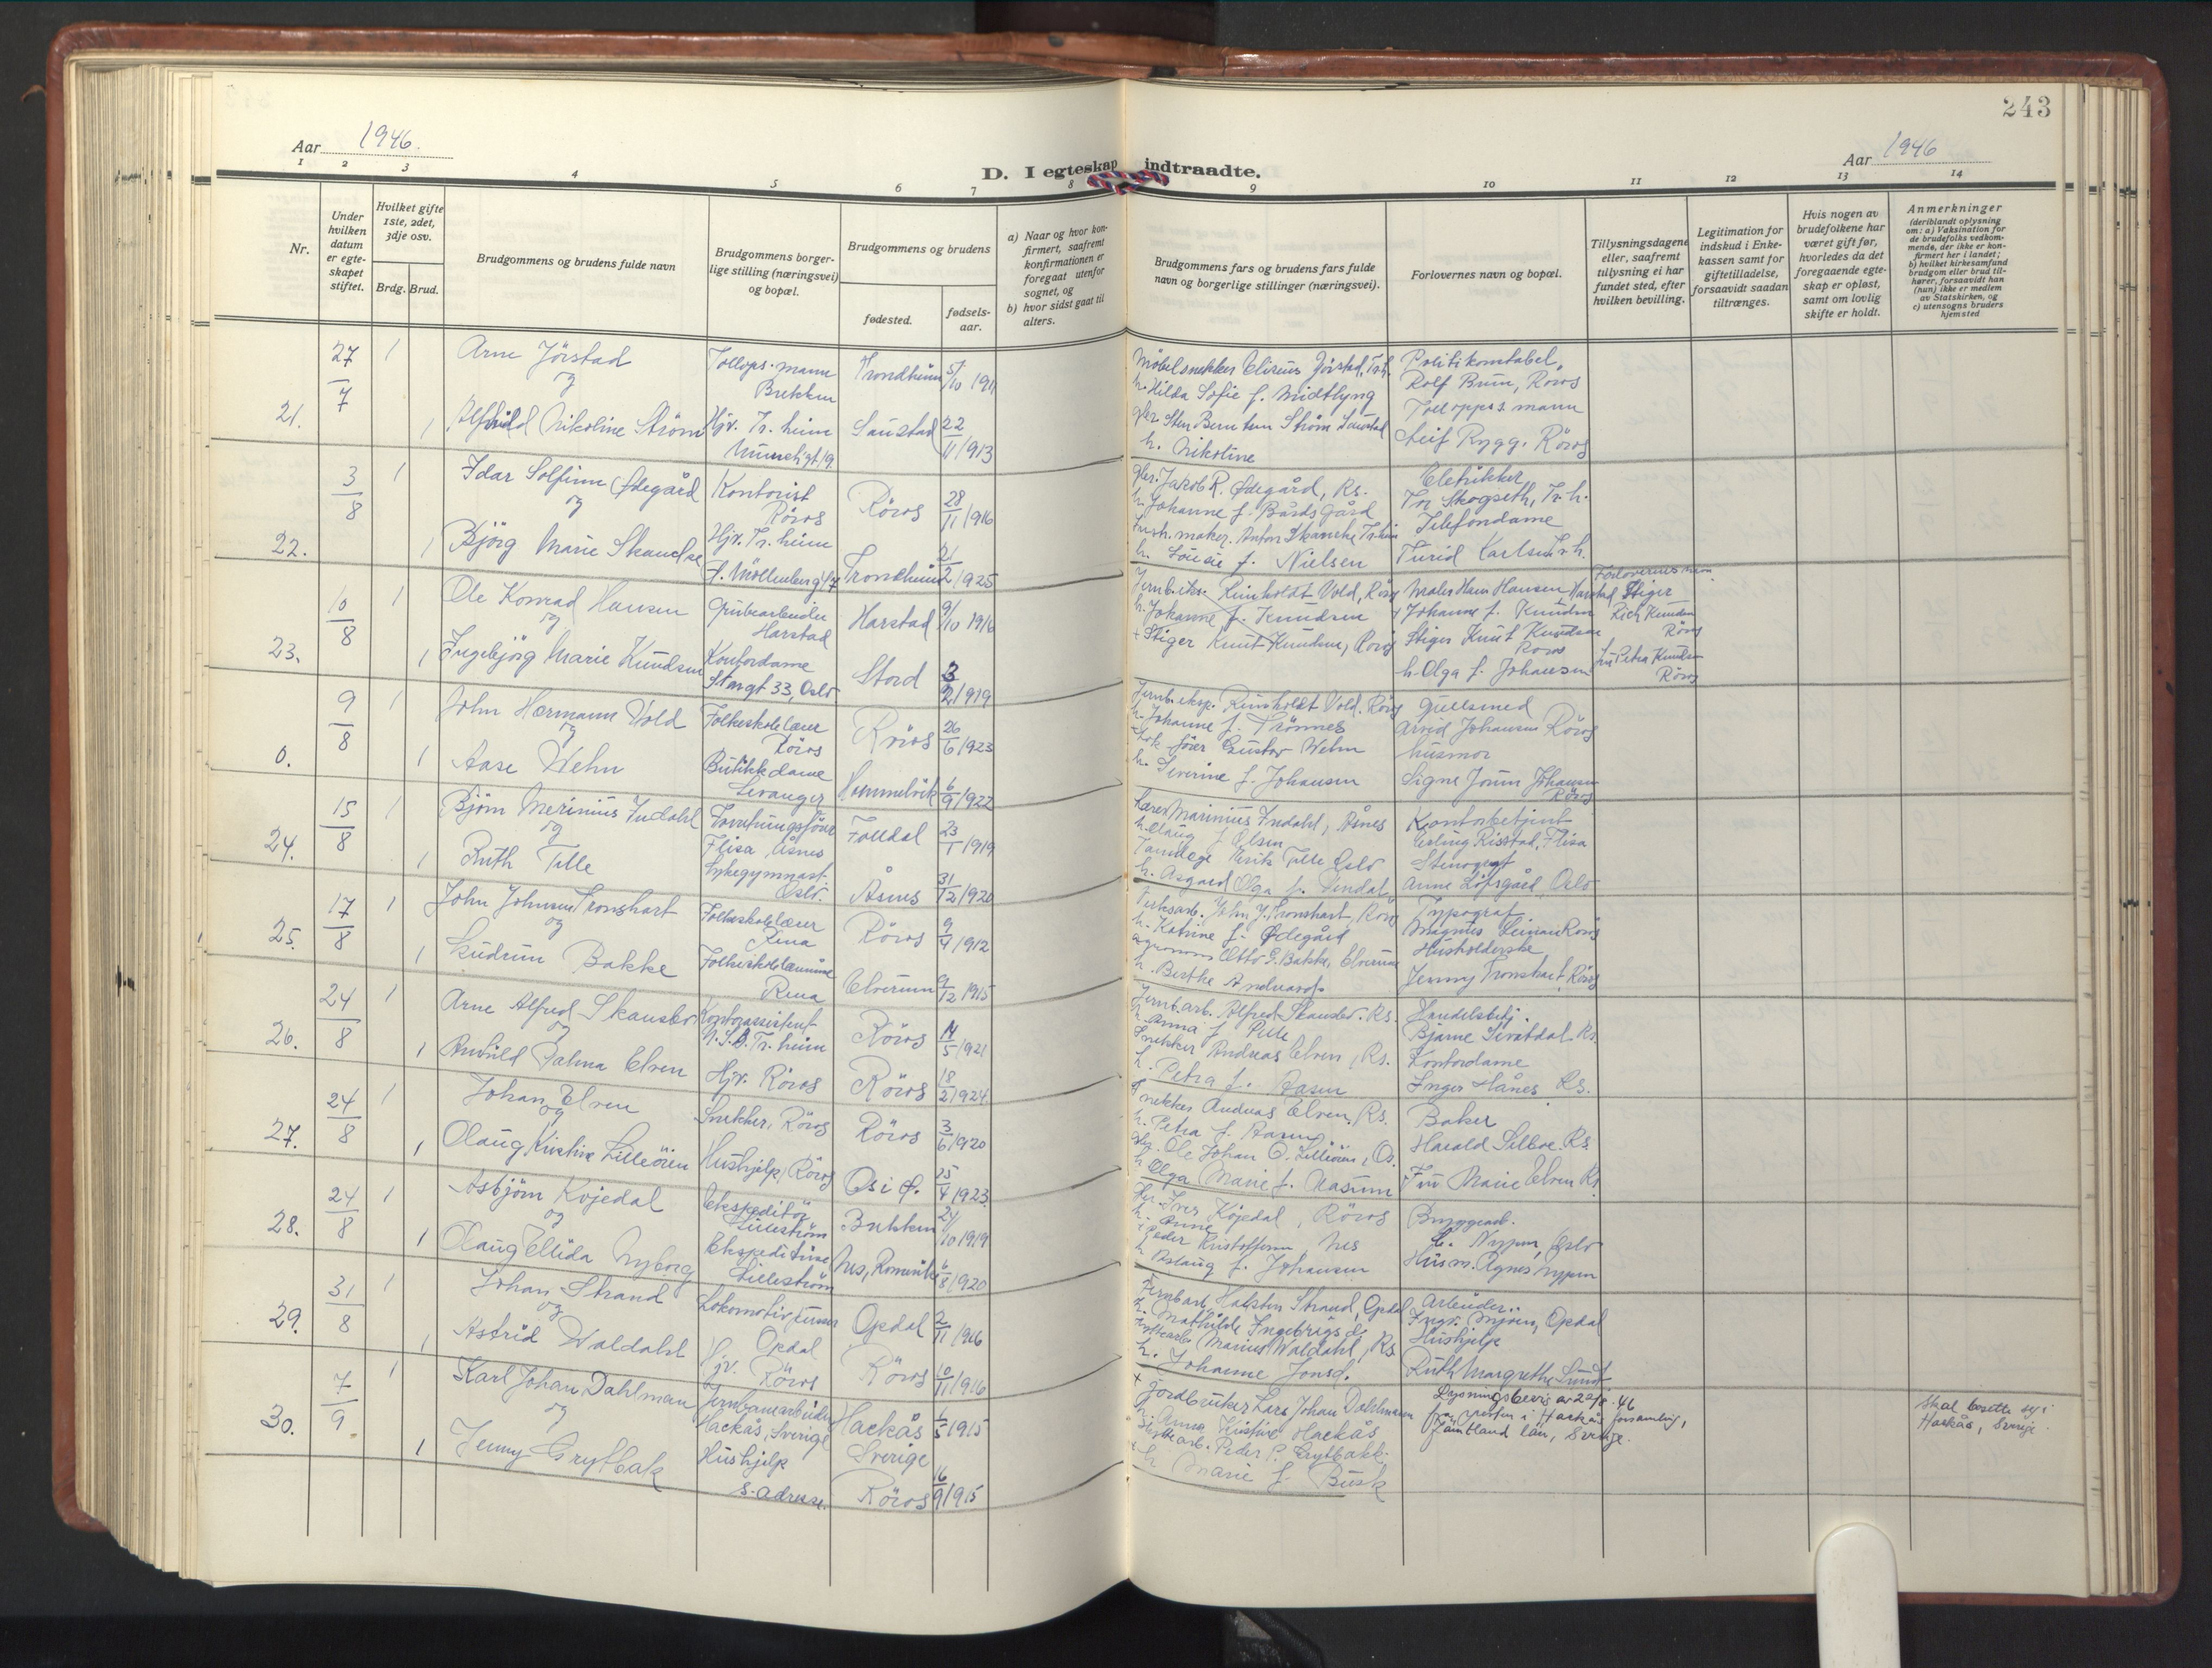 243
Aar 1946.
Aar 1946
D. I egteskap indtraadte.
1 2 3 4 5 6 7 8 9 10 11 12 13 14
Nr.
Under hvilken datum er egteskapet stiftet.
Hvilket gifte 1ste, 2det, 3dje osv.
Brdg. Brud.
Brudgommens og brudens fulde navn
Brudgommens borgerlige stilling (næringsvei) og bopæl.
Brudgommens og brudens
fødested.
fødselsaar.
a) Naar og hvor konfirmert, saafremt konfirmationen er foregaat utenfor sognet, og
b) hvor sidst gaat til alters.
Brudgommens fars og brudens fars fulde navn og borgerlige stillinger (næringsvei).
Forlovernes navn og bopæl.
Tillysningsdagene eller, saafremt tillysning ei har fundet sted, efter hvilken bevilling.
Legitimation for indskud i Enkekassen samt for giftetilladelse, forsaavidt saadan tiltrænges.
Hvis nogen av brudefolkene har været gift før, hvorledes da det foregaaende egteskap er opløst, samt om lovlig skifte er holdt.
Anmerkninger
(deriblandt oplysning om: a) Vaksination for de brudefolks vedkommende, der ikke er konfirmert her i landet; b) hvilket kirkesamfund brudgom eller brud tilhører, forsaavidt han (hun) ikke er medlem av Statskirken, og c) utensogns bruders hjemsted
21.
27/7
1
Arne Jörstad
og
Tollops.mann
Brekken
Trondheim
5/10 1911
Møbelsnekker Elireus Jörstad, Tr.h.
h. Hilda Sofie f. Midtlyng
Politikonstabel,
Rolf Brun, Röros
1
Alfhild Nikoline Ström
Hjv. Tr.heim
Saustad
22/11 1913
h. Nikoline
Tolloppsmann
Leif Rygg. Röros
22.
3/8
1
Idar Solfinn Ødegård
og
Kontorist
Röros
Röros
28/11 1916
gbr. Jakob R. Ødegård, Rs.
h. Johanne f. Bårdsgård
Eletrikker
Tor Skogseth, Tr.h.
1
Bjørg Marie Skancke
Hjv. Tr.heim
Trondheim
21/2 1925
h. Louise f. Nielsen
Telefondame
Turid Karlsen Tr.h.
23.
10/8
1
Ole Konrad Hansen
og
Grubearbeider
Harstad
Harstad
9/10 1916
Jernb.eks. Reinholdt Vold, Röros
h. Johanne f. Knudsen
Maler Hans Hansen Harstad
Johanne f. Knudsen
Forlovernes navn
Stiger
Rich Knudsen
Röros
1
Ingebjörg Marie Knudsen
Kontordame
Storgt 33, Oslo
Stord
3/2 1919
+ Stiger Knut Knudsen, Röros
Stiger Knut Knudsen
Röros
h. Olga f. Johansen
fru Petra Knudsen
Röros
0.
9/8
1
John Hermann Vold
og
Folkeskolelærer
Röros
Röros
26/6 1923
Jernb.eksp. Reinholdt Vold. Röros
h. Johanne f. Trönnes
Gullsmed
Arvid Johansen Röros
1
Aase Wehn
Butikkdame
Levanger
Hommelvik
6/9 1922
Gustav Wehn
h. Severine f. Johansen
husmor
Signe Johansen
Röros
24.
15/8
1
Bjørn Merinius Indahl
og
Forretningsfører
Flisa, Åsnes
Folldal
23/1 1919
Lærer Marinius Indahl, Åsnes
h. Olaug f. Olsen
Kontorbetjent
Erling Risstad, Flisa
1
Ruth Tille
Sykegymnast
Oslo.
Åsnes
31/12 1920
Tannlege Erik Tille Oslo
h. Asgaard Olga f.
Stenograf
Anne Löfsgård Oslo
25.
17/8
1
John Johnsen Tronshart
og
Folkeskolelærer
Rena
Röros
9/4 1912
John J. Tronshart, Röros
h. Katrine f. Ødegård
Typograf
Magnus Röros
1
Gudrun Bakke
Folkeskolelærerinne
Rena
Elverum
9/12 1915
agronom Otto P. Bakke, Elverum
h. Berthe
Husholderske
Jenny Tronshart, Röros
26.
24/8
1
Arne Alfred Skansbo
og
Kontorassistent
N.S.B. Tr.heim
Röros
14/5 1921
Jernb.arb. Alfred Skansbo. Rs.
h. Anna f.
Handelsbetj.
Bjarne Rs.
1
Palma Elven
Hjv. Röros
Röros
18/2 1924
Snekker Andreas Elven, Rs.
h. Petra f. Aasen
Kontordame
Inger Hånes Rs.
27.
24/8
1
Johan Elven
og
Snekker, Röros
Röros
3/6 1920
Snekker Andreas Elven, Rs.
h. Petra f. Aasen
Baker
Harald Selboe. Rs.
1
Olaug Kristine Lilleøien
Hushjelp, Röros
Os i Ø.
25/4 1923
gbr. Ole Johan O. Lilleøien, Os.
h. Olga Marie f. Aasum
Fru Marie Elven Rs
28.
24/8
1
Asbjørn Kojedal
og
Ekspeditör
Lilleström
Brekken
24/10 1919
gbr. Iver Kojedal, Röros
h. Anne
Bryggearb.
L. Nypen, Oslo
1
Olaug Ellida Nyborg
Ekspeditrise
Lilleström
Nes, Romerike
6/8 1920
Peder Kristoffersen, Nes
h. Aslaug f. Johansen
Husm. Agnes Nypen
29.
31/8
1
Johan Strand
og
Opdal
Opdal
2/11 1916
Jernb.arb. Halsten Strand, Opdal
h. Mathilde Ingebrigsd.
Arbeider
Ingv. Mjøen, Opdal
1
Astrid Waldahl
Hjv. Röros
Röros
10/11 1916
Marius Waldahl, Rs
h. Johanne Jonsd.
Hushjelp
Ruth Margrethe Sundt
30.
7/9
1
Karl Johan Dahlman
og
Jernbanearbeider
Hackås, Sverige
Hackås
Sverige
1/5 1915
+ Jordbruker Lars Johan Dahlmann
h. Anna Kristine Hackås
Lysningsbevis av 20/8 - 46
fra presten i Hackås forsamling,
Jämtland län, Sverige.
Skal bosette seg i
Hackås, Sverige.
1
Jenny Grytbak
Hushjelp
s. adresse.
Röros
16/9 1915
Peder P. Grytbakk.
+ h. Marie f. Busk